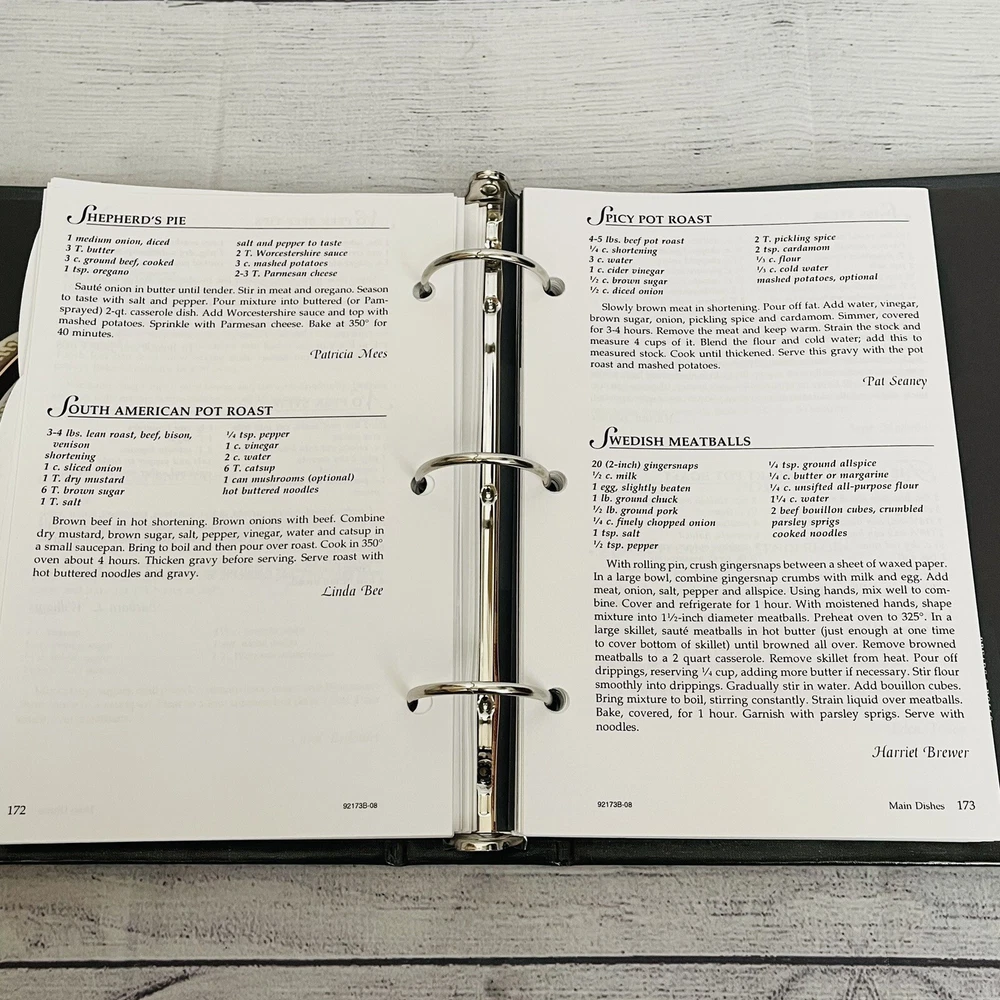 SHEPHERD'S PIE
1 medium onion, diced
3 T. butter
3 c. ground beef, cooked
1 tsp. oregano
salt and pepper to taste
2 T. Worcestershire sauce
3 c. mashed potatoes
2-3 T. Parmesan cheese
Sauté onion in butter until tender. Stir in meat and oregano. Season
to taste with salt and pepper. Pour mixture into buttered (or Pam-
sprayed) 2-qt. casserole dish. Add Worcestershire sauce and top with
mashed potatoes. Sprinkle with Parmesan cheese. Bake at 350° for
40 minutes.
Patricia Mees
SOUTH AMERICAN POT ROAST
3-4 lbs. lean roast, beef, bison,
venison
shortening
1 c. sliced onion
1 T. dry mustard
6 T. brown sugar
1 T. salt
¼ tsp. pepper
1 c. vinegar
2 c. water
6 T. catsup
1 can mushrooms (optional)
hot buttered noodles
Brown beef in hot shortening. Brown onions with beef. Combine
dry mustard, brown sugar, salt, pepper, vinegar, water and catsup in
a small saucepan. Bring to boil and then pour over roast. Cook in 350°
oven about 4 hours. Thicken gravy before serving. Serve roast with
hot buttered noodles and gravy.
Linda Bee
172
92173B-08
SPICY POT ROAST
4-5 lbs. beef pot roast
¼ c. shortening
3 c. water
1 c. cider vinegar
½ c. brown sugar
½ c. diced onion
2 T. pickling spice
2 tsp. cardamom
⅓ c. flour
⅓ c. cold water
mashed potatoes, optional
Slowly brown meat in shortening. Pour off fat. Add water, vinegar,
brown sugar, onion, pickling spice and cardamom. Simmer, covered
for 3-4 hours. Remove the meat and keep warm. Strain the stock and
measure 4 cups of it. Blend the flour and cold water; add this to
measured stock. Cook until thickened. Serve this gravy with the pot
roast and mashed potatoes.
Pat Seaney
SWEDISH MEATBALLS
20 (2-inch) gingersnaps
½ c. milk
1 egg, slightly beaten
1 lb. ground chuck
½ lb. ground pork
¼ c. finely chopped onion
1 tsp. salt
½ tsp. pepper
¼ tsp. ground allspice
¼ c. butter or margarine
¼ c. unsifted all-purpose flour
1¼ c. water
2 beef bouillon cubes, crumbled
parsley sprigs
cooked noodles
With rolling pin, crush gingersnaps between a sheet of waxed paper.
In a large bowl, combine gingersnap crumbs with milk and egg. Add
meat, onion, salt, pepper and allspice. Using hands, mix well to com-
bine. Cover and refrigerate for 1 hour. With moistened hands, shape
mixture into 1½-inch diameter meatballs. Preheat oven to 325°. In a
large skillet, sauté meatballs in hot butter (just enough at one time
to cover bottom of skillet) until browned all over. Remove browned
meatballs to a 2 quart casserole. Remove skillet from heat. Pour off
drippings, reserving ¼ cup, adding more butter if necessary. Stir flour
smoothly into drippings. Gradually stir in water. Add bouillon cubes.
Bring mixture to boil, stirring constantly. Strain liquid over meatballs.
Bake, covered, for 1 hour. Garnish with parsley sprigs. Serve with
noodles.
Harriet Brewer
92173B-08
Main Dishes 173